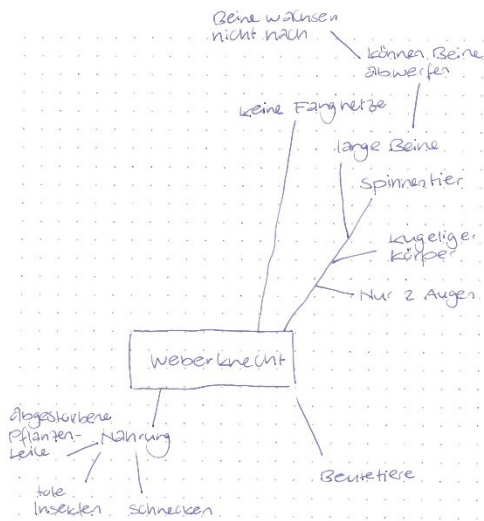 Beine wachsen
nicht nach
können Beine
abwerfen
keine Fangnetze
lange Beine
Spinnentier
kugeliger
Körper
Nur 2 Augen
Weberknecht
abgestorbene
Pflanzen-
teile
Nahrung
tote
Insekten
Schnecken
Beutetiere